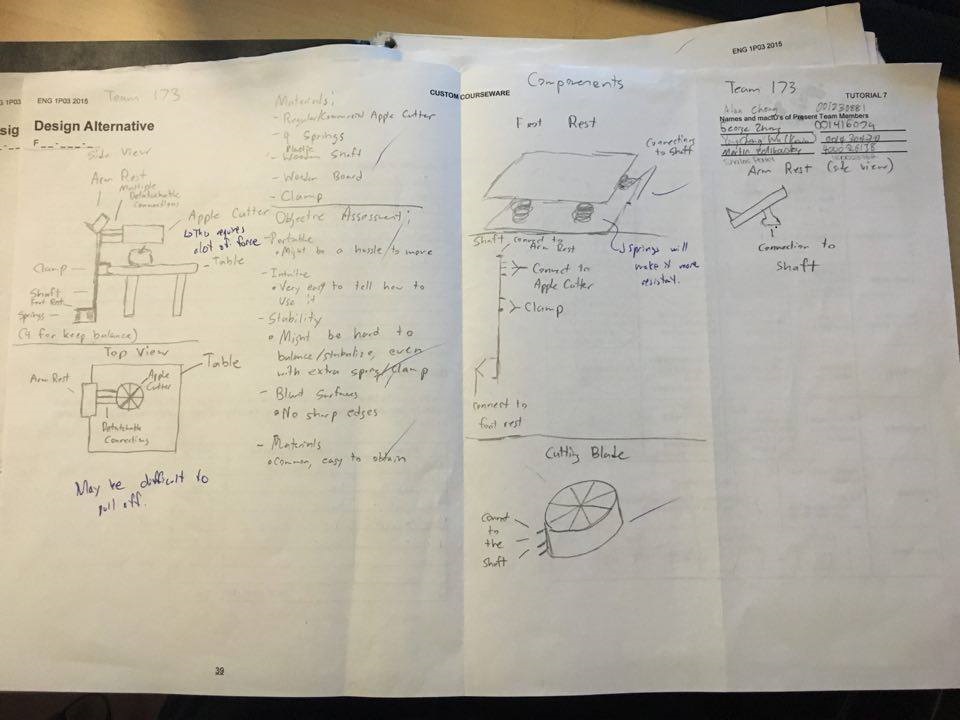 ENG 1P03 2015
G 1P03
ENG 1P03 2015
Team 173
sig
Design Alternative
F
Side View
Arm Rest
Multiple
Detatchable
Connections
Apple Cutter
↳ This requires
a lot of force
Clamp
Table
Shaft
Foot Rest
Springs
(4 for keep balance)
Top View
Table
Arm Rest
Apple
Cutter
Detatchable
Connections
May be difficult to
pull off.
39
Materials:
- Regular/Commercial Apple Cutter
- 4 Springs
Plastic
- Wooden Shaft
- Wooden Board
- Clamp
Objective Assessment:
- Portable
• Might be a hassle to move
- Intuitive
• Very easy to tell how to
use it
- Stability
• Might be hard to
balance/stabalize, even
with extra spring/clamp
- Blunt Surfaces
• No sharp edges
- Materials
• Common, easy to obtain
CUSTOM COURSEWARE
Components
Foot Rest
Connections
to Shaft
↳ Springs will
make it more
resistant.
Shaft
connect to
Arm Rest
Connect to
Apple Cutter
Clamp
connect to
foot rest
Cutting Blade
Connect
to
the
Shaft
Team 173
TUTORIAL 7
Alan Cheng 001230881
Names and macID's of Present Team Members
George Zhang 001416074
Martin
Arm Rest (side view)
Connection to
Shaft